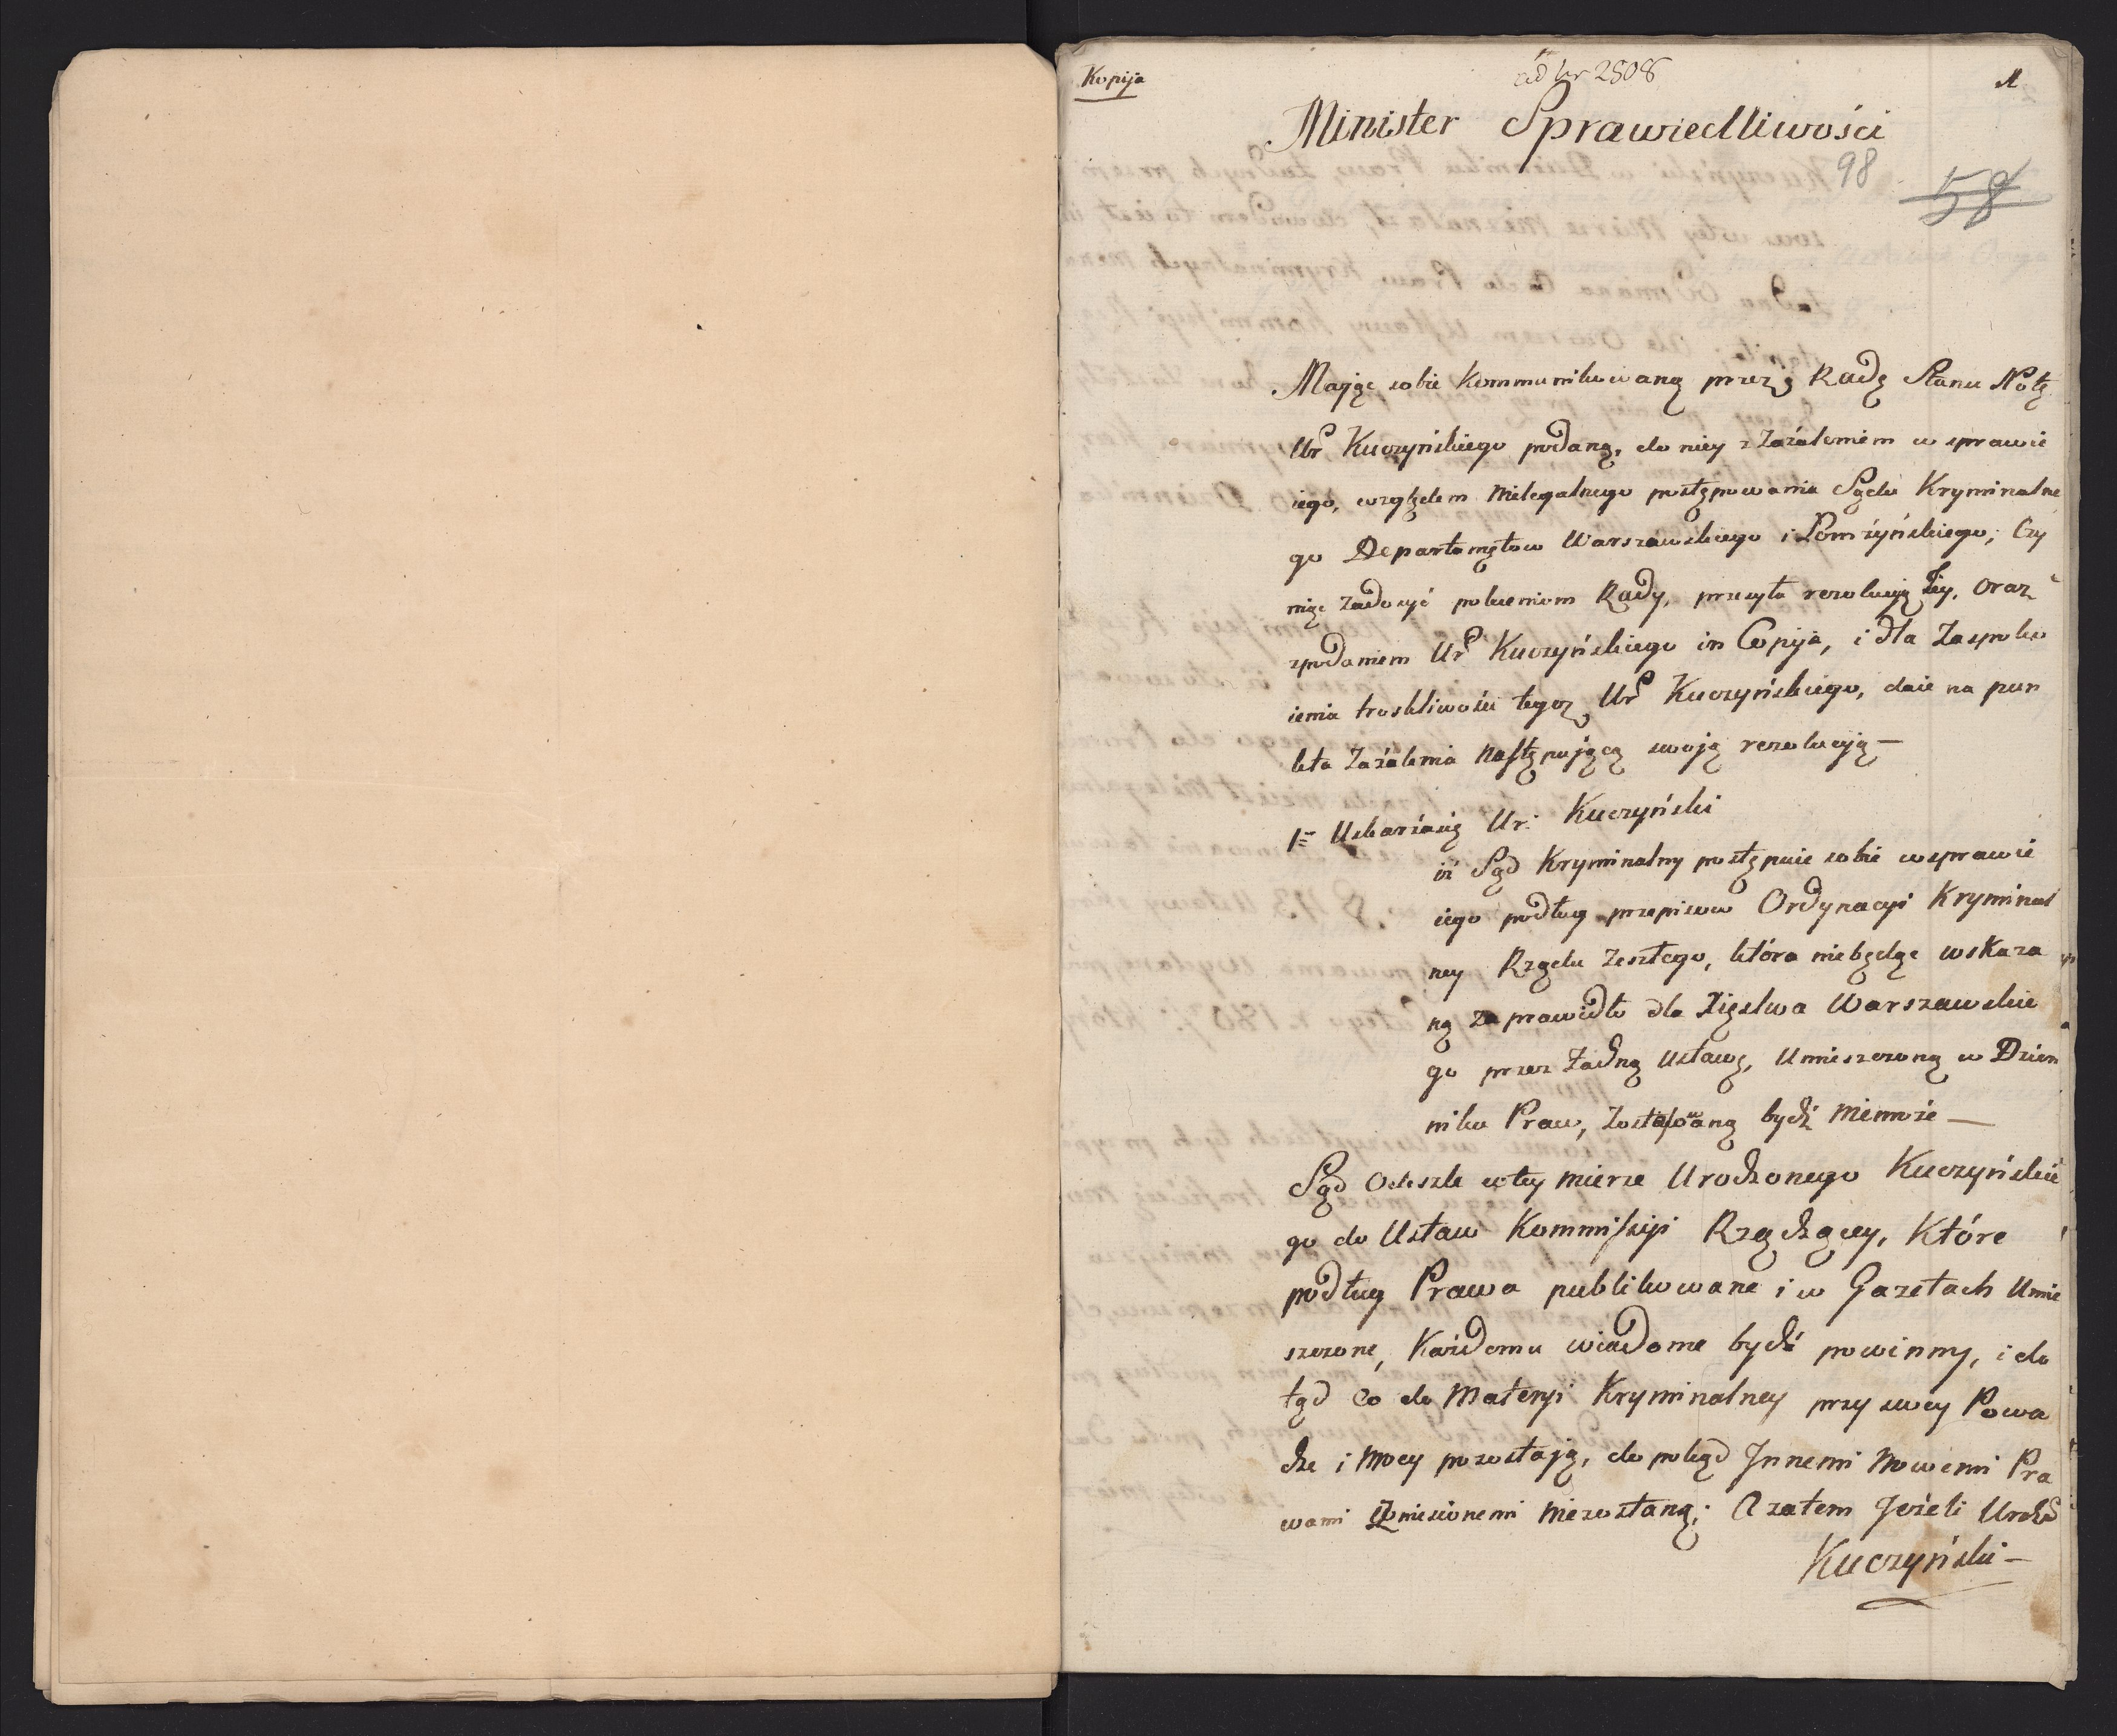 Kopija
ad Nr 2508
Minister Sprawiedliwości
98
58
Mając sobie kommunikowaną przez Radę Stanu Notę
Ur Kuczyńskiego podaną, do niey z Zażaleniem w sprawie
iego, względem nielegalnego postępowania Sądu Kryminalne
go Departamętow Warszawskiego i Łomżyńskiego; Czy
niąc zadosyć poleceniom Rady, przesyła rezolucyją Jey, oraz
z podaniem Ur Kuczyńskiego in Copija, i dla Zaspoko
ienia troskliwości tegoz Ur Kuczyńskiego, daie na pun
kta Zażalenia następującą swoją rezolucyją —
1= Uskarża się Ur: Kuczyński
iż Sąd Kryminalny postępuie sobie w sprawie
iego podług przepisow Ordynacyi Kryminal
ney Rządu Zeszłego, która niebędąc wskaza
ną za prawidło dla Xięstwa Warszawskie
go przez Żadną Ustawę, Umieszczoną w Dzien
niku Praw, Zostosowaną bydź niemoże —
Sąd Odeszle w tey mierze Urodzonego Kuczyńskie
go do Ustaw Kommissyi Rządzącey, Które
podług Prawa publikowane i w Gazetach Umie
szczone, Każdemu wiadome bydź powinny, i do
tąd Co do Materyi Kryminalney przy swey Powa
dze i Mocy pozostają, do pokąd Innemi Nowemi Pra
wami Zniesionemi niezostaną; A zatem Jeżeli Urodz
Kuczyński —